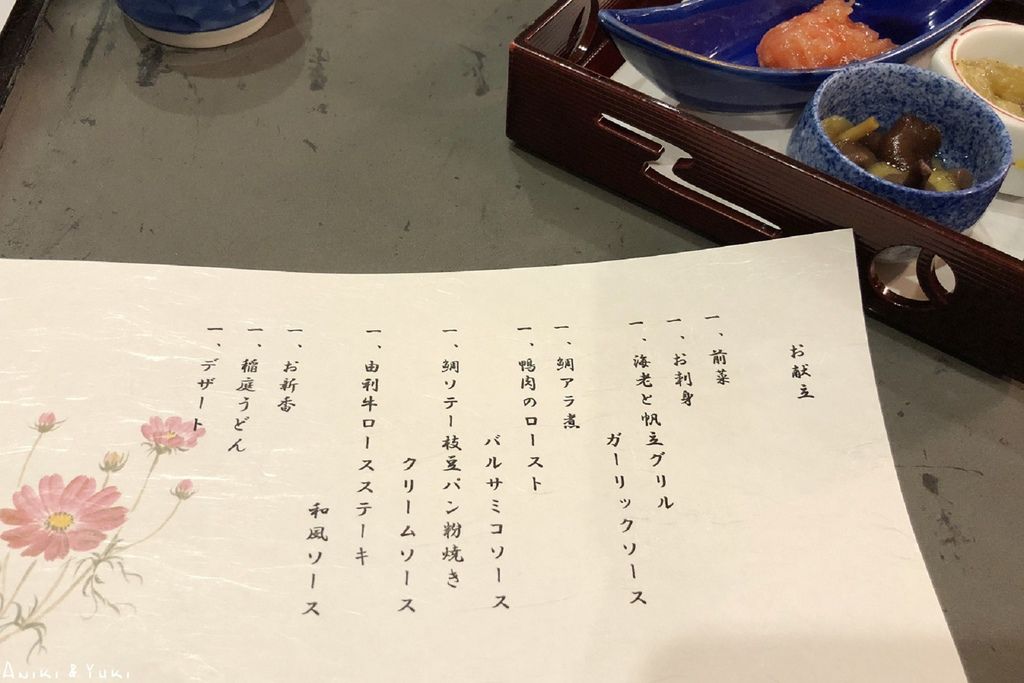 お献立
一、前菜
一、お刺身
一、海老と帆立グリル
ガーリックソース
一、鯛アラ煮
一、鴨肉のロースト
バルサミコソース
一、鯛ソテー枝豆パン粉焼き
クリームソース
一、由利牛ロースステーキ
和風ソース
一、お新香
一、稲庭うどん
一、デザート
ANIKI & YUKI